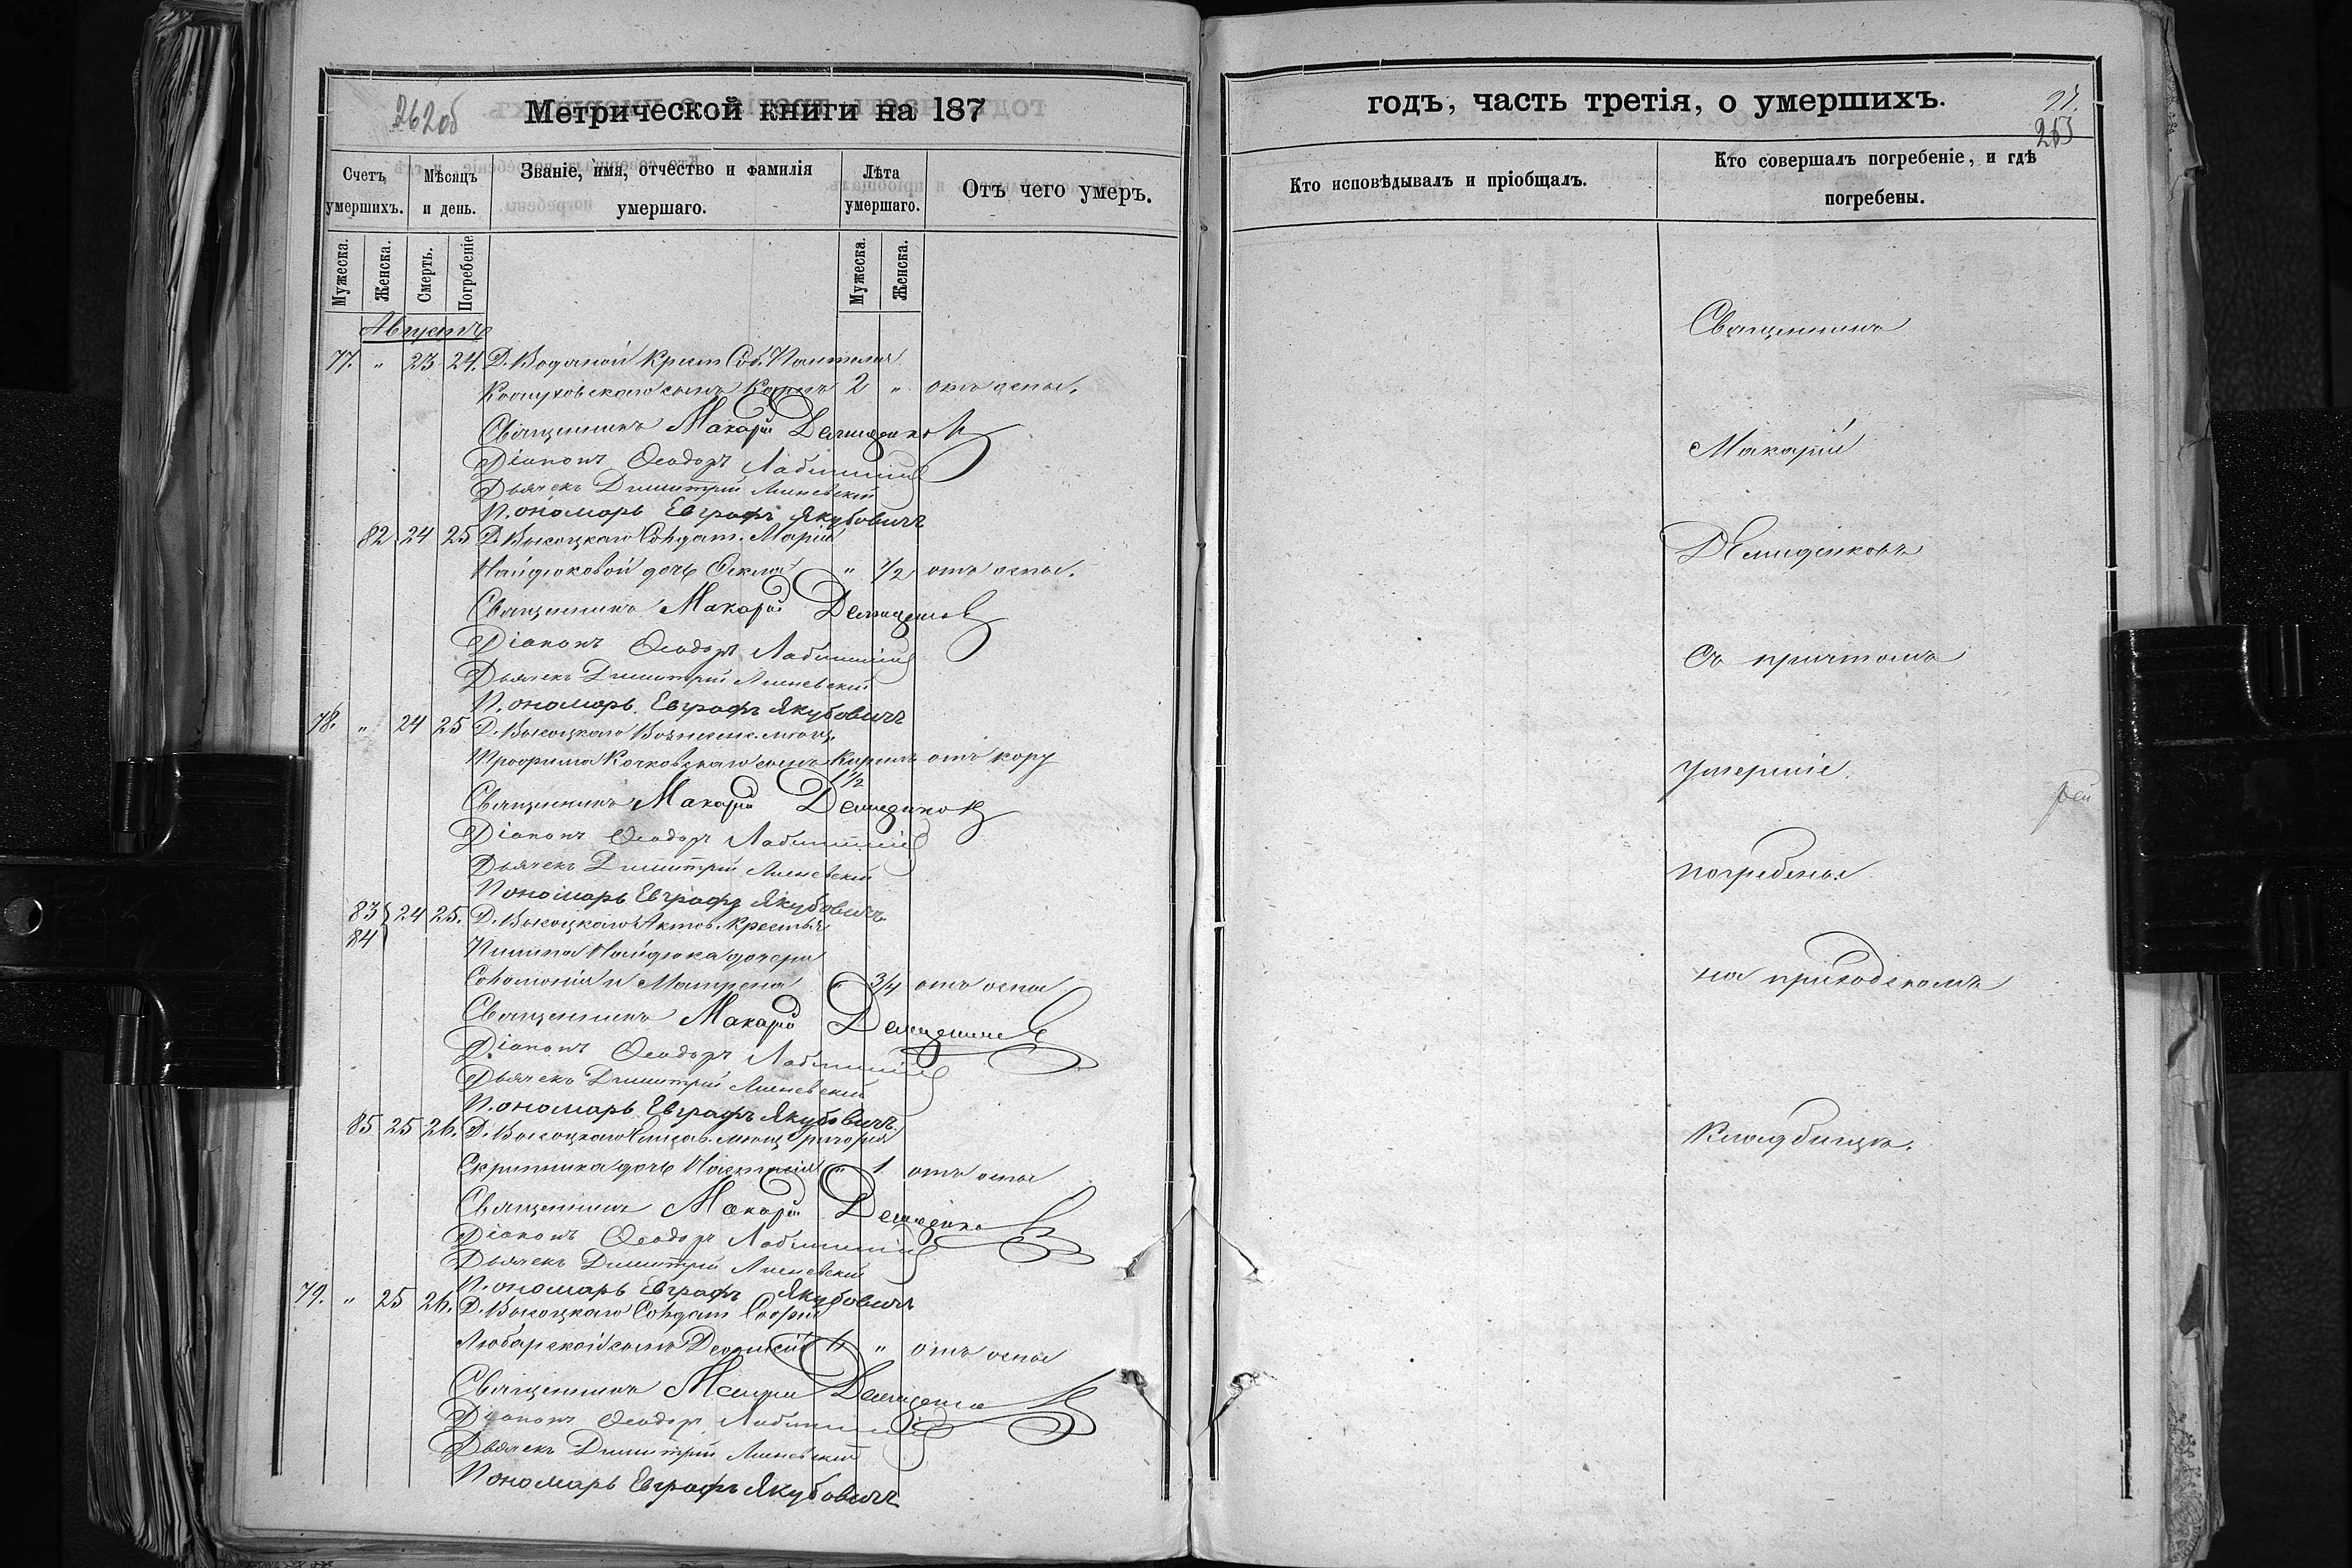 262об
Метрической книги на 187
Счетъ умершихъ.
Мѣсяцъ и день.
Званіе, имя, отчество и фамилія умершаго.
Лѣта умершаго.
Отъ чего умеръ.
Мужеска.
Женска.
Смерть.
Погребеніе
Мужеска.
Женска.
Августъ
77. " 23 24. Д. Водяной Крест. Соб. Пантелея
сынъ 2 " отъ оспы.
Священникъ Макарій Демиденковъ
Діаконъ Ѳеодоръ
Дьячекъ Димитрій Линевскій
Пономарь Евграфъ Якубовичъ
82 24 25 Д. Высоцкаго Солдат. Маріи
Найдюковой дочь Ѳекла " 1/2 отъ оспы.
Священникъ Макарій Демиденковъ
Діаконъ Ѳеодоръ
Дьячекъ Димитрій Линевскій
Пономарь Евграфъ Якубовичъ
78. " 24 25 Д. Высоцкаго Вознесенс. мѣщ.
Трофима Кочковскаго сынъ Кириллъ отъ кору
1 1/2
Священникъ Макарій Демиденковъ
Діаконъ Ѳеодоръ
Дьячекъ Димитрій Линевскій
Пономарь Евграфъ Якубовичъ
83 24 25. Д. Высоцкаго Актов. Крестья.
84
Пимина Найдюка дочери
Соломонія и Матрена " 3/4 отъ оспы
Священникъ Макарій Демиденковъ
Діаконъ Ѳеодоръ
Дьячекъ Димитрій Линевскій
Пономарь Евграфъ Якубовичъ
85 25 26. Д. Высоцкаго Елисав. мѣщ. Григорія
Скрипника дочь Настасія " 1 отъ оспы
Священникъ Макарій Демиденковъ
Діаконъ Ѳеодоръ
Дьячекъ Димитрій Линевскій
Пономарь Евграфъ Якубовичъ
79. " 25 26. Д. Высоцкаго Солдат. Софіи
Любарской сынъ " отъ оспы
Священникъ Макарій Демиденковъ
Діаконъ Ѳеодоръ
Дьячекъ Димитрій Линевскій
Пономарь Евграфъ Якубовичъ
годъ, часть третія, о умершихъ.
97.
263
Кто исповѣдывалъ и пріобщалъ.
Кто совершалъ погребеніе, и гдѣ
погребены.
Священникъ
Макарій
Демиденковъ
Съ причтомъ
Умершіе
погребены
на приходскомъ
Кладбищѣ.